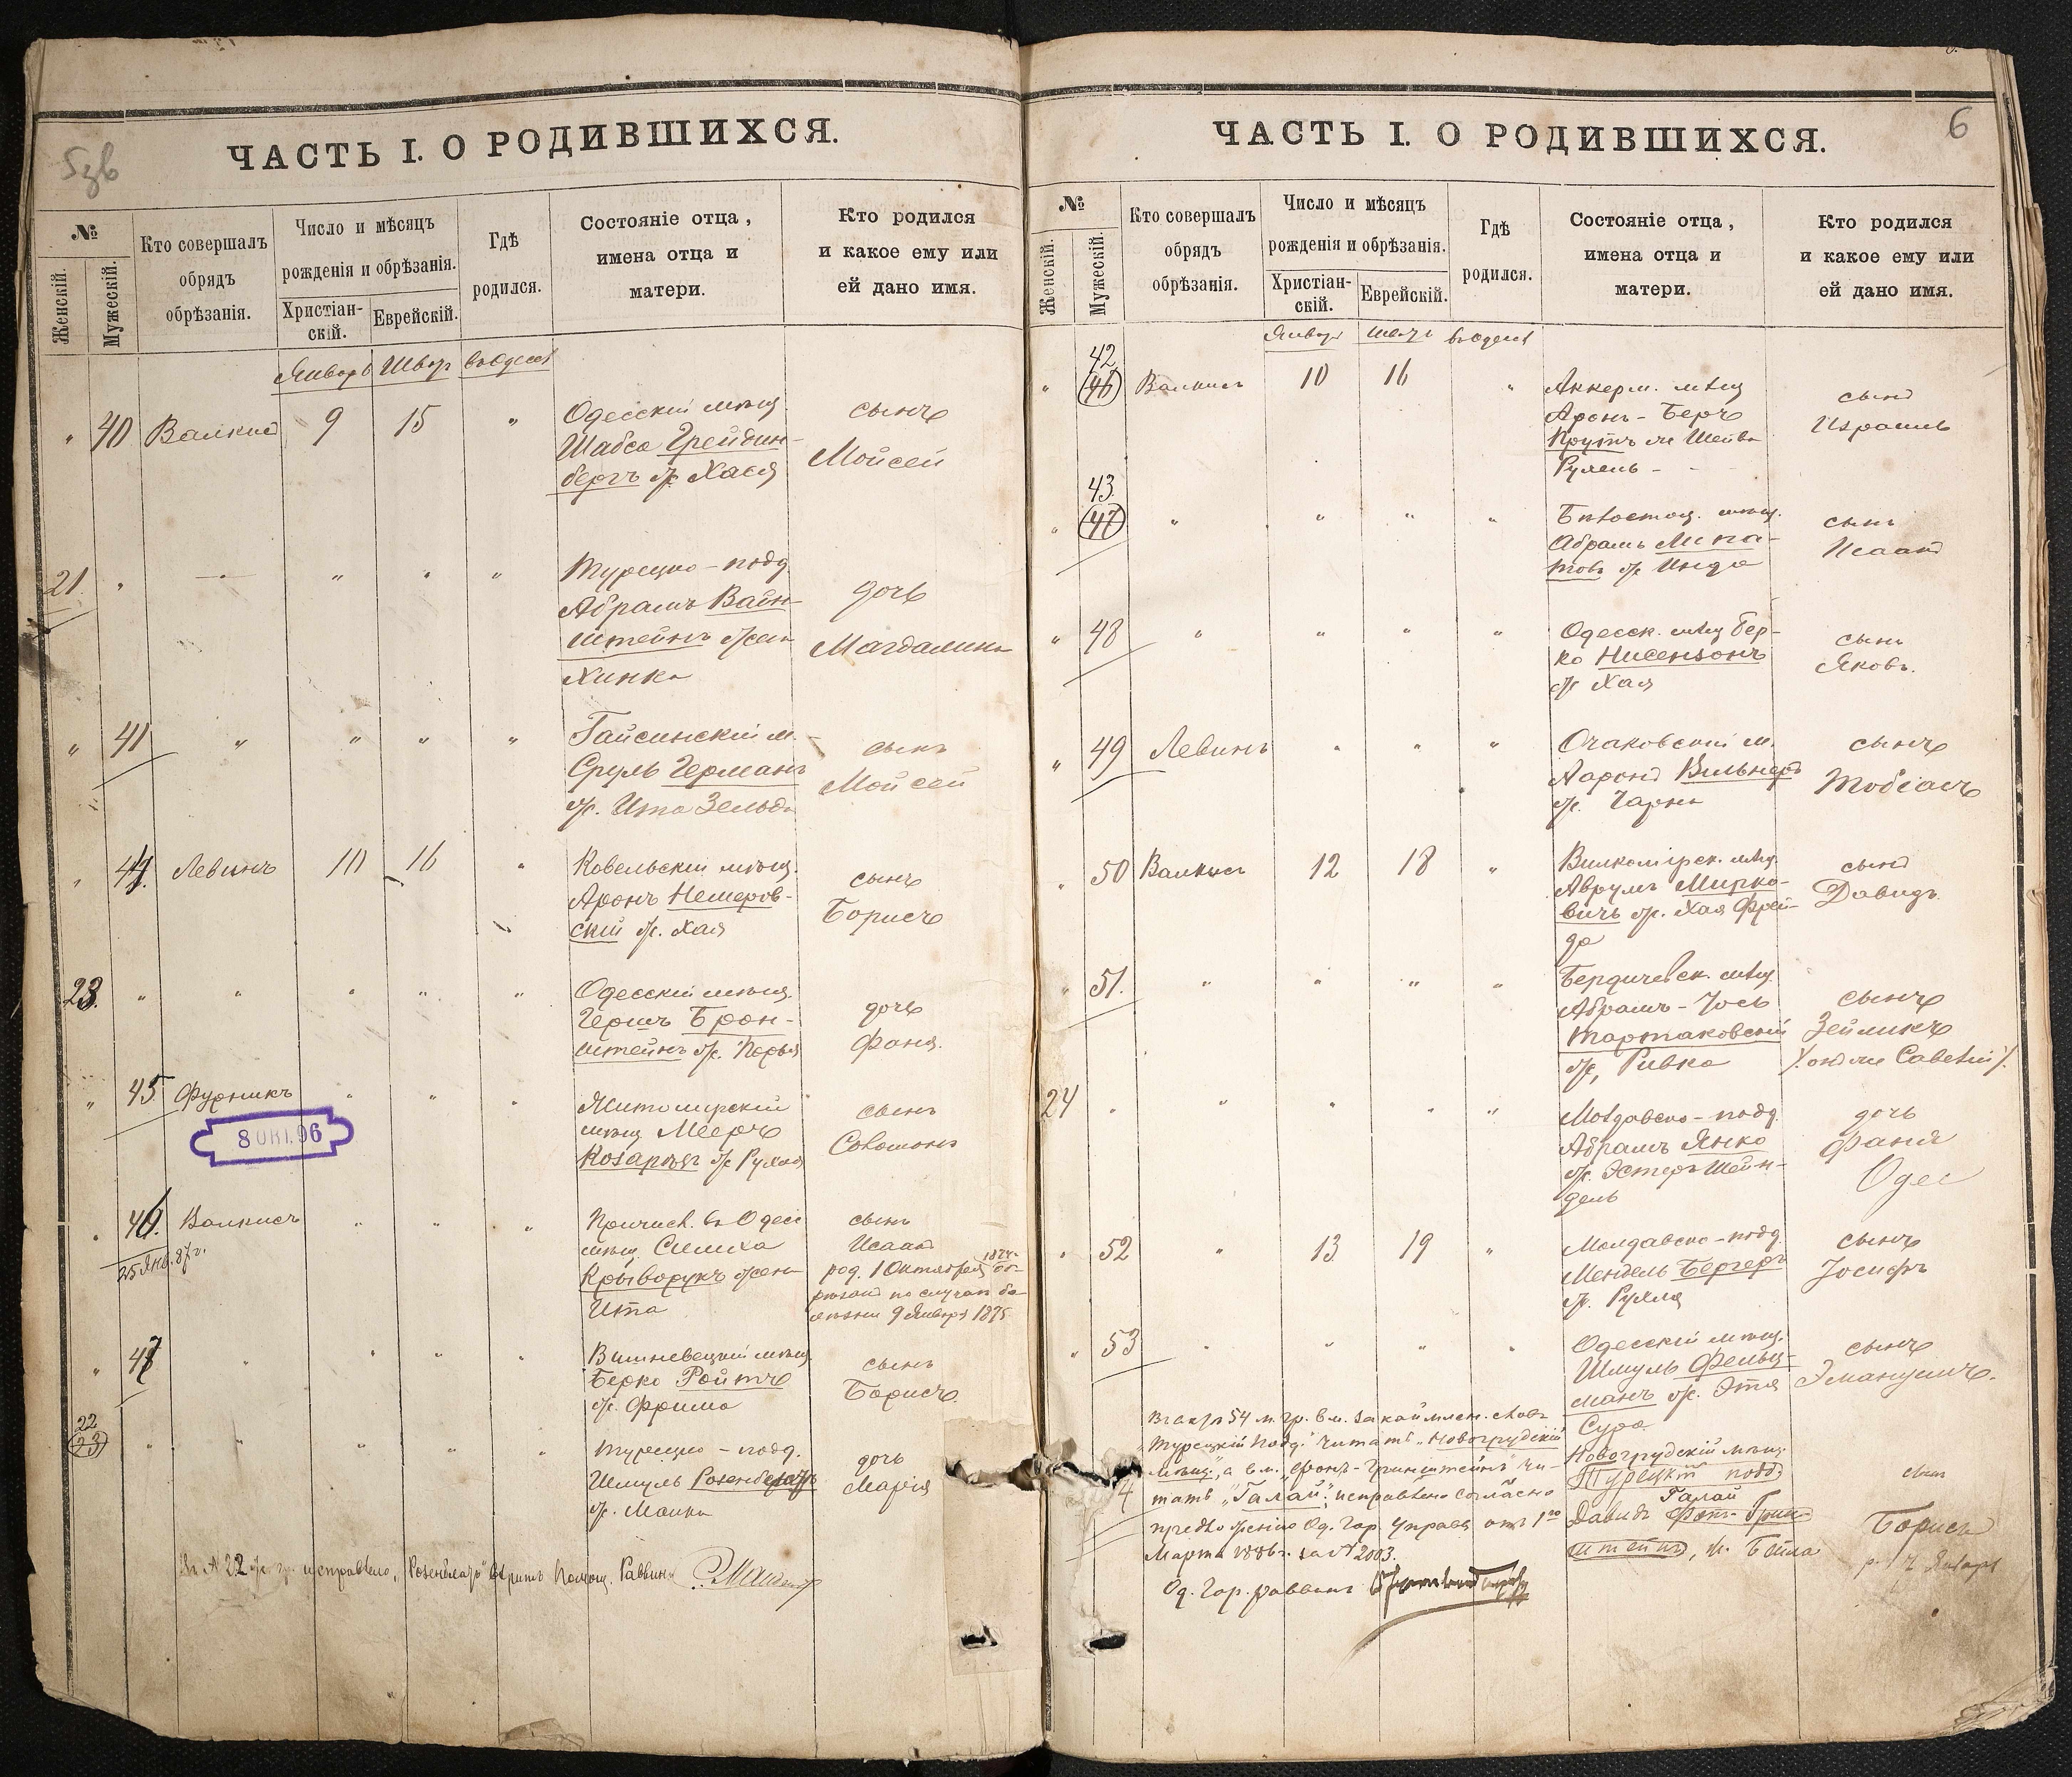 5зв
ЧАСТЬ I. О РОДИВШИХСЯ.
№
Женскій.
Мужескій.
Кто совершалъ
обрядъ
обрѣзанія.
Число и мѣсяцъ
рожденія и обрѣзанія.
Христіан-
скій.
Еврейскій.
Гдѣ
родился.
Состояніе отца,
имена отца и
матери.
Кто родился
и какое ему или
ей дано имя.
Январь
40
9
15
Одесскій мѣщ.
Шабса Грейдин-
бергъ ж. Хася
сынъ
Мойсей
21.
Турецко-подд.
Абрамъ Вайн-
штейнъ жена
Хинка
дочь
Магдалина
41
Гайсинскій м.
Сруль Германъ
ж. Ита Зельда
сынъ
Мойсей
Левинъ
10
16
Ковельскій мѣщ.
Аронъ Немеров-
скій ж. Хая
сынъ
Борисъ
23.
Одесскій мѣщ.
Гершъ Брон-
штейнъ ж. Перля
дочь
Фаня.
45
Фурникъ
8 ОКТ. 96
Житомирскій
мѣщ Мееръ
ж Рухля
сынъ
Соломонъ
46.
25 Янв. 87 г.
Валкисъ
Причисл. въ Одесс
мѣщ. Симха
Криворукъ жена
Ита
сынъ
Исаакъ
род. 1 Октября 1874 об-
рѣзанъ по случаю бо-
лѣзни 9 Января 1875
47
Вишневецкій мѣщ.
Берко Ройтъ
ж. Фрима
сынъ
Борисъ.
22
23
Турецко-подд.
Шмуль
ж. Манка
дочь
Марія
По № 22 ж. гр. исправлено, "Розенблатъ" вѣрить Помощ. Раввина
6
ЧАСТЬ I. О РОДИВШИХСЯ.
№
Женскій.
Мужескій.
Кто совершалъ
обрядъ
обрѣзанія.
Число и мѣсяцъ
рожденія и обрѣзанія.
Христіан-
скій.
Еврейскій.
Гдѣ
родился.
Состояніе отца,
имена отца и
матери.
Кто родился
и какое ему или
ей дано имя.
Январь
42
46
Валкисъ
10
16
Аккерм. мѣщ
Аронъ-Беръ
Крутъ ж Шейва
Рухель
сынъ
Израиль
43.
47
Бѣлостоц. мѣщ.
Абрамъ Липа-
товъ ж Инда
сынъ
Исаакъ
48
Одесск. мѣщ Бер-
ко Нисензонъ
ж Хая
сынъ
Яковъ.
49
Левинъ
Очаковскій м.
Ааронъ Вильнеръ
ж. Чарна
сынъ
Тобіасъ
50
Валкисъ
12
18
Вилкомірск. мѣщ.
Аврумъ Мирко-
вичъ ж. Хая Фрей-
да
сынъ
Давидъ
51.
Бердичевск. мѣщ.
Абрамъ-Іось
Тартаковскій
ж, Ривка
сынъ
Зейликъ
/:онъ же Савелій:/.
24
Молдавско-подд.
Абрамъ Янко
ж. Эстеръ Шейн-
дель
дочь
Фаня
Одес
52
13
19
Молдавско-подд.
Мендель Бергеръ
ж. Рухля
сынъ
Іосифъ
53
Одесскій мѣщ.
Шмуль Фельц-
манъ ж. Этя
Сура
сынъ
Эмануилъ.
54 м. гр. вм. словъ
"Турецкій Подд." читать "Новогрудскій
мѣщ.", а вм. "Фонъ-Гринштейнъ" чи-
тать "Галай"; исправлено согласно
предложенію Од. Гор. Управы отъ 1го
Марта 1886 г. за № 2003.
Од. Гор. раввинъ
Новогрудскій мѣщ.
Турецкій подд.
Галай
Давидъ Фонъ-Грин
штейнъ, ж. Бейла
сынъ
Борисъ